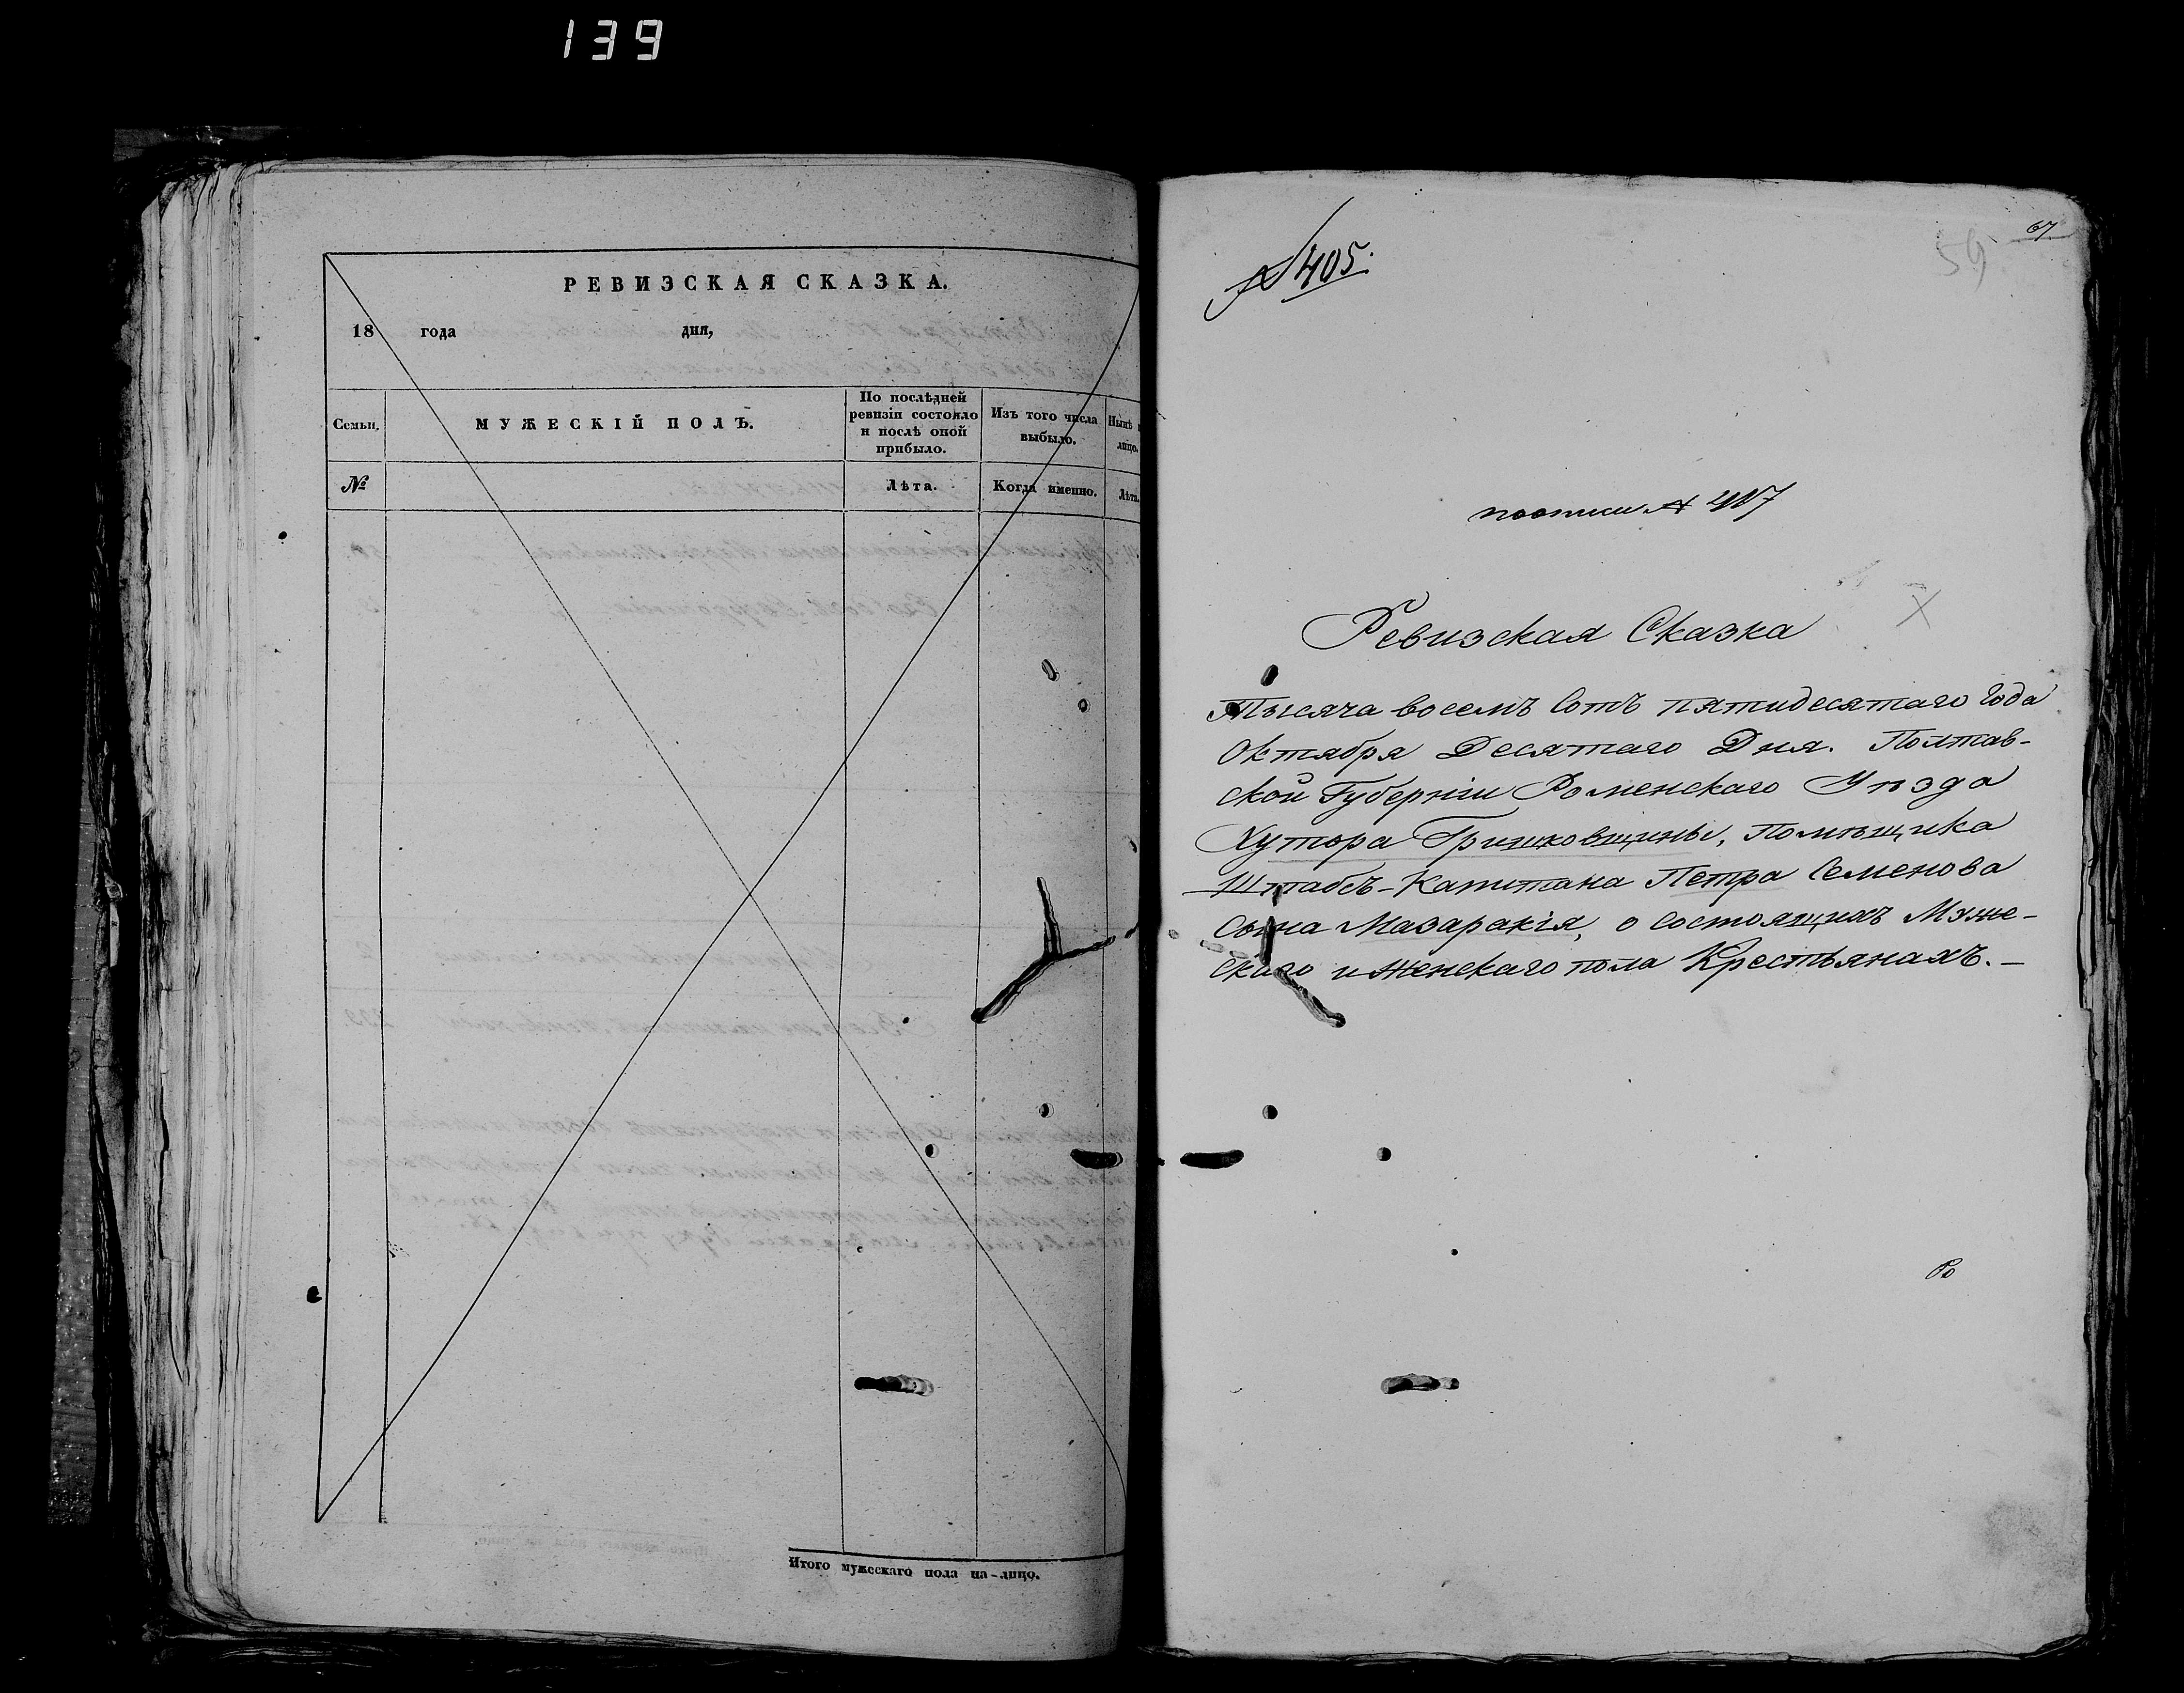 139
РЕВИЗСКАЯ СКАЗКА.
18 года дня,
Семьи,
МУЖЕСКІЙ ПОЛЪ.
По послѣдней
ревизіи состояло
и послѣ оной
прибыло.
Изъ того числа
выбыло.
Нынѣ
лицо.
№
Лѣта.
Когда именно.
Лѣта.
Итого мужескаго пола на-лицо.
№ 405.
59
67
по описи №
Ревизская Сказка
Тысяча восемъ Сотъ пятидесятаго Года
Октября Десятаго Дня. Полтав-
ской Губерніи Роменскаго Уѣзда
Хутора Гришковщины, Помѣщика
Штабсъ-Капитана Петра Семенова
Сына Мазаракія, о состоящихъ Муже-
скаго и Женскаго пола Крестьянахъ.—